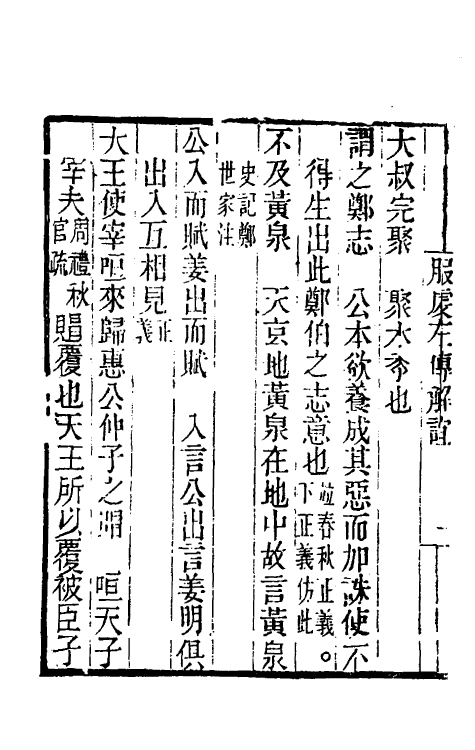 服虔左傳解誼 一
大叔完聚 聚禾黍也
謂之鄭志 公本欲養成其惡而加誅使不
得生出此鄭伯之志意也 竝春秋正義。下正義仿此
不及黃泉 天玄地黃泉在地中故言黃泉
史記鄭世家注
公入而賦姜出而賦 入言公出言姜明俱
出入互相見 正義
大王使宰咺來歸惠公仲子之賵 咺天子
宰夫 周禮秋官疏 賵覆也天王所以覆被臣子